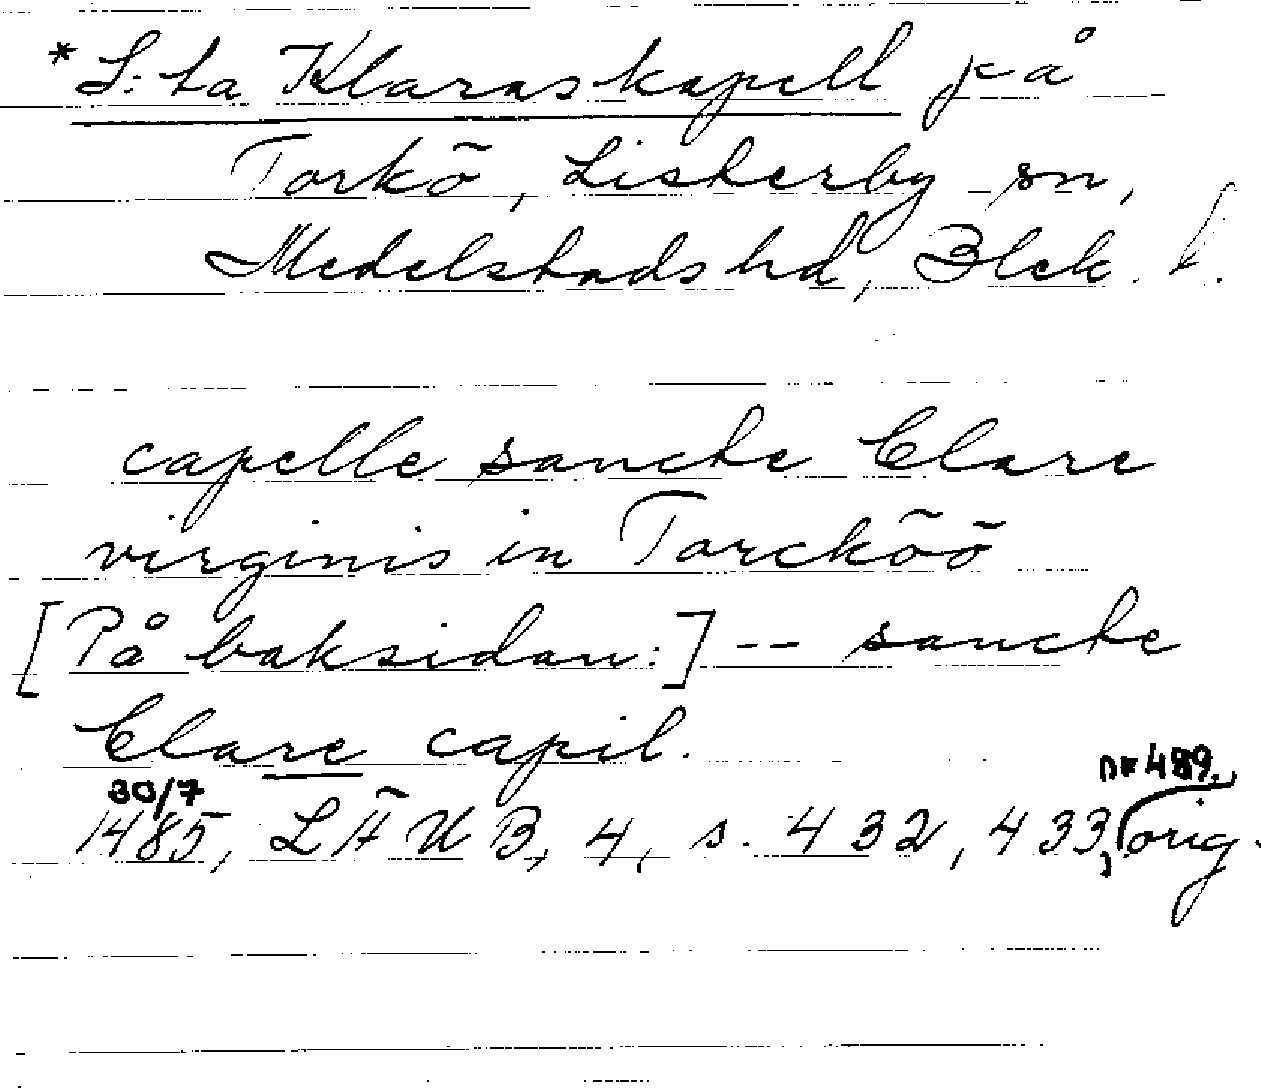 *S:ta Klaras kapell på
Torkö, Listerby sn,
Medelstads hd, Blek. l.
capelle sancte Clare
virginis in Torcköö
[På baksidan:] -- sancte
Clare capil.
30/7 nr 489.
1485, LÄUB, 4, s. 432, 433, orig.